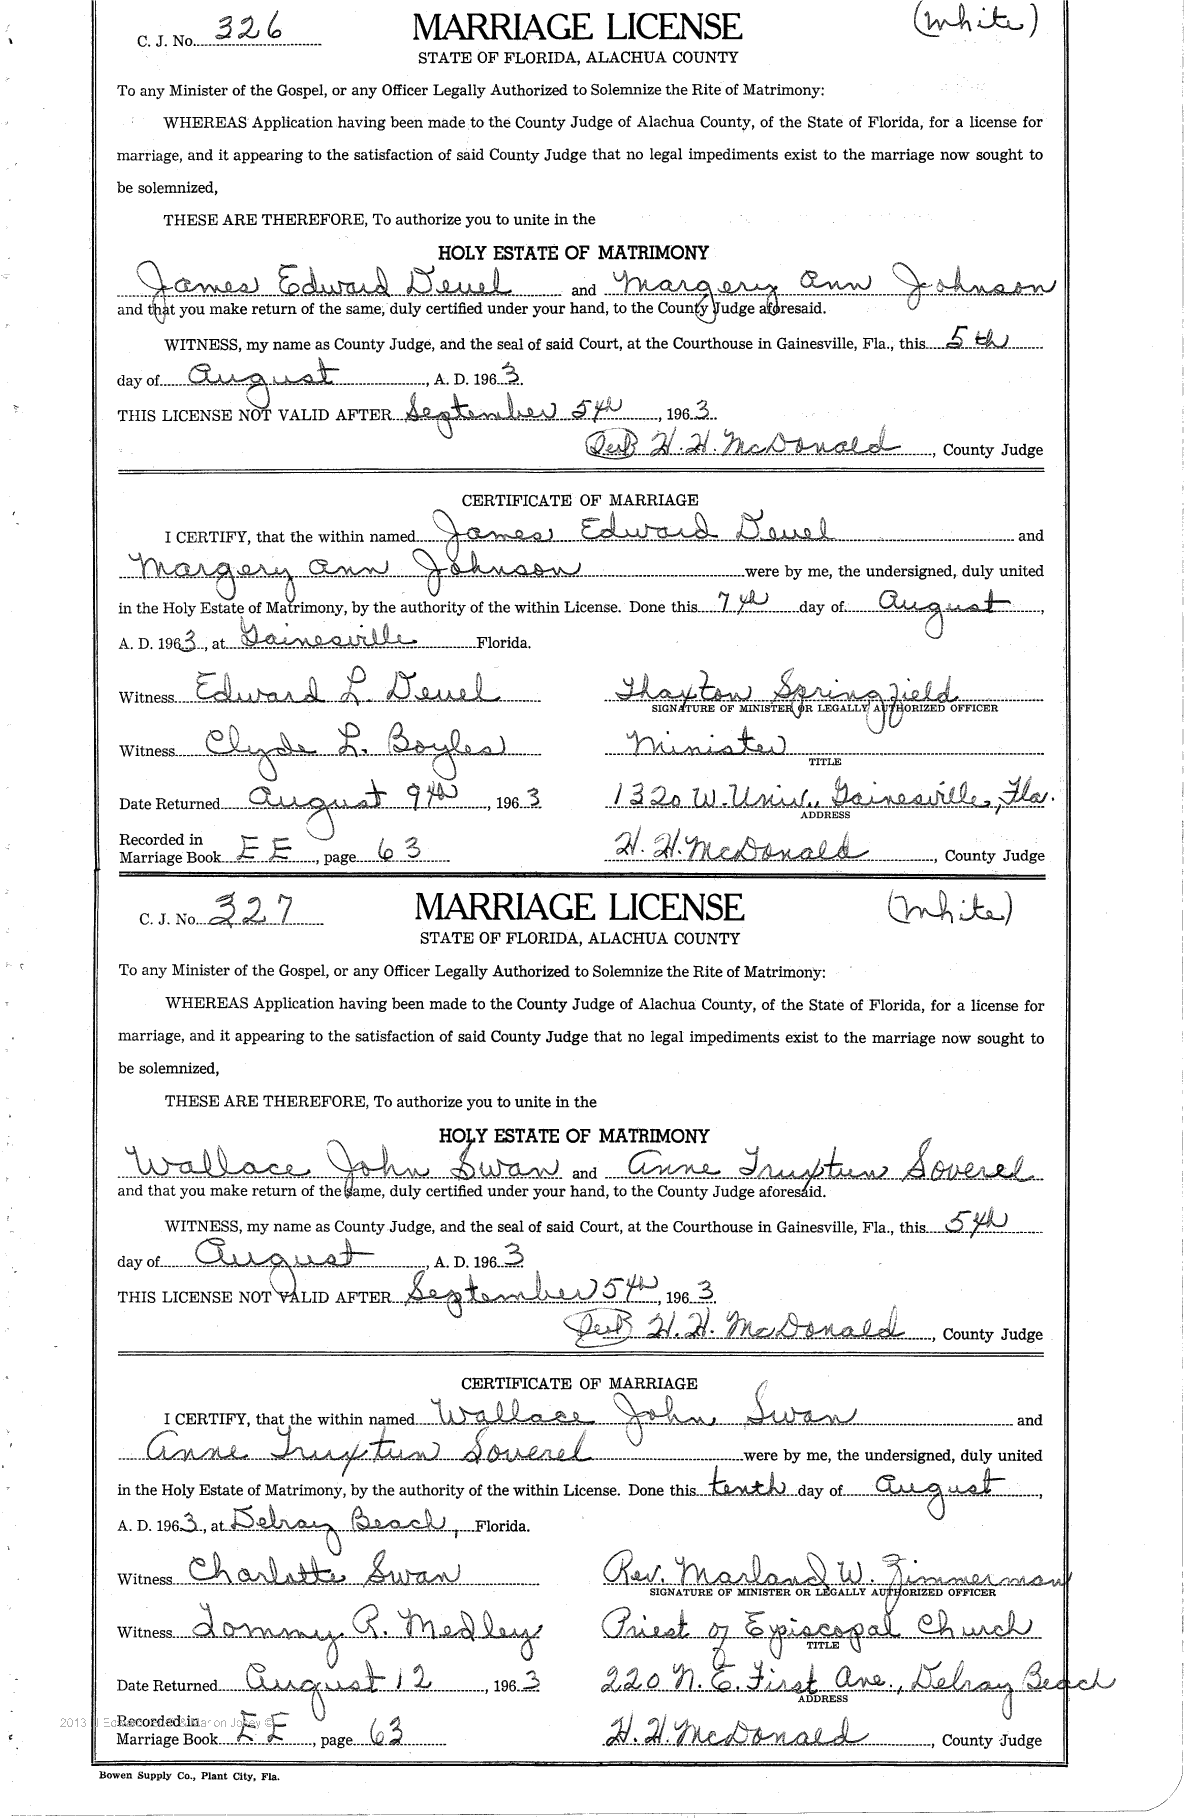 C. J. No. 326 MARRIAGE LICENSE (White)
STATE OF FLORIDA, ALACHUA COUNTY
To any Minister of the Gospel, or any Officer Legally Authorized to Solemnize the Rite of Matrimony:
WHEREAS Application having been made to the County Judge of Alachua County, of the State of Florida, for a license for
marriage, and it appearing to the satisfaction of said County Judge that no legal impediments exist to the marriage now sought to
be solemnized,
THESE ARE THEREFORE, To authorize you to unite in the
HOLY ESTATE OF MATRIMONY
James Edward Deuel and Margery Ann Johnson
and that you make return of the same, duly certified under your hand, to the County Judge aforesaid.
WITNESS, my name as County Judge, and the seal of said Court, at the Courthouse in Gainesville, Fla., this 5th
day of August, A. D. 1963.
THIS LICENSE NOT VALID AFTER September 5th, 1963.
H. H. McDonald, County Judge
CERTIFICATE OF MARRIAGE
I CERTIFY, that the within named James Edward Deuel and
Margery Ann Johnson were by me, the undersigned, duly united
in the Holy Estate of Matrimony, by the authority of the within License. Done this 7th day of August,
A. D. 1963, at Gainesville Florida.
Witness Edward L. Deuel Thaxton Springfield
SIGNATURE OF MINISTER OR LEGALLY AUTHORIZED OFFICER
Witness Clyde L. Boyles Minister
TITLE
Date Returned August 9th, 1963 1320 W. Univ., Gainesville, Fla.
ADDRESS
Recorded in
Marriage Book EE, page 63 H. H. McDonald, County Judge
C. J. No. 327 MARRIAGE LICENSE (White)
STATE OF FLORIDA, ALACHUA COUNTY
To any Minister of the Gospel, or any Officer Legally Authorized to Solemnize the Rite of Matrimony:
WHEREAS Application having been made to the County Judge of Alachua County, of the State of Florida, for a license for
marriage, and it appearing to the satisfaction of said County Judge that no legal impediments exist to the marriage now sought to
be solemnized,
THESE ARE THEREFORE, To authorize you to unite in the
HOLY ESTATE OF MATRIMONY
Wallace John Swan and Anne Truxtun Soverel
and that you make return of the same, duly certified under your hand, to the County Judge aforesaid.
WITNESS, my name as County Judge, and the seal of said Court, at the Courthouse in Gainesville, Fla., this 5th
day of August, A. D. 1963
THIS LICENSE NOT VALID AFTER September 5th, 1963
H. H. McDonald, County Judge
CERTIFICATE OF MARRIAGE
I CERTIFY, that the within named Wallace John Swan and
Anne Truxtun Soverel were by me, the undersigned, duly united
in the Holy Estate of Matrimony, by the authority of the within License. Done this tenth day of August,
A. D. 1963, at Delray Beach, Florida.
Witness Charlotte Swan Rev. Marland W. Zimmerman
SIGNATURE OF MINISTER OR LEGALLY AUTHORIZED OFFICER
Witness Tommy R. Medley Priest of Episcopal Church
TITLE
Date Returned August 12, 1963 220 N. E. First Ave., Delray Beach
ADDRESS
Recorded in
Marriage Book EE, page 63 H. H. McDonald, County Judge
Bowen Supply Co., Plant City, Fla.